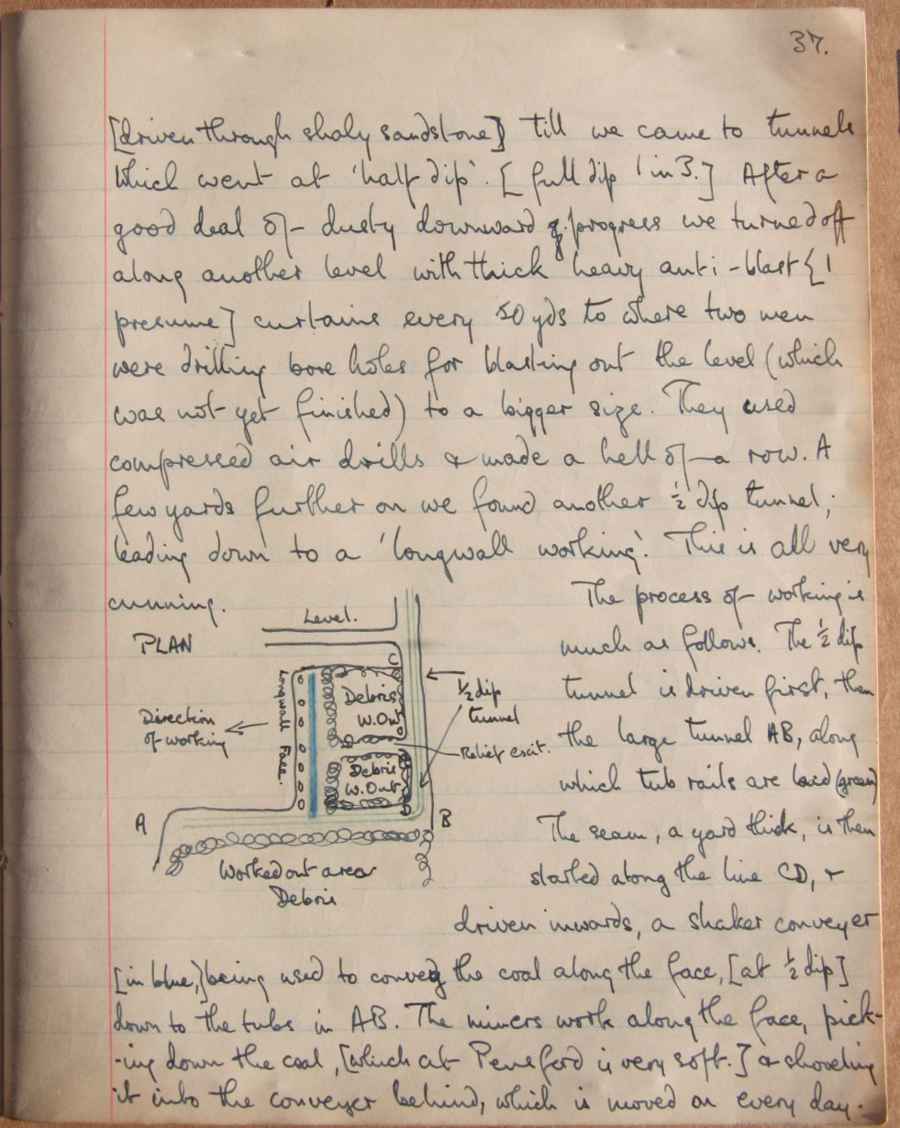 37.
[driven through shaly sandstone] till we came to tunnels
which went at 'half dip'. [full dip 1 in 3.] After a
good deal of dusty downward progress we turned off
along another level with thick heavy anti-blast [I
presume] curtains every 50 yds to where two men
were drilling bore holes for blasting out the level (which
was not yet finished) to a bigger size. They used
compressed air drills & made a hell of a row. A
few yards further on we found another ½ dip tunnel;
leading down to a 'longwall working'. This is all very
cunning.
The process of working is
much as follows. The ½ dip
tunnel is driven first, then
the large tunnel AB, along
which tub rails are laid (green)
The seam, a yard thick, is then
started along the line CD, &
driven inwards, a shaker conveyer
[in blue,] being used to convey the coal along the face, [at ½ dip]
down to the tubs in AB. The miners work along the face, pick-
-ing down the coal, [which at Pensford is very soft.] & shoveling
it into the conveyer behind, which is moved on every day.
PLAN
Level.
C
Longwall Face.
Direction
of working
Debris
W.Out
½ dip
tunnel
Relief exit.
Debris
W.Out
A
B
Worked out area
Debris